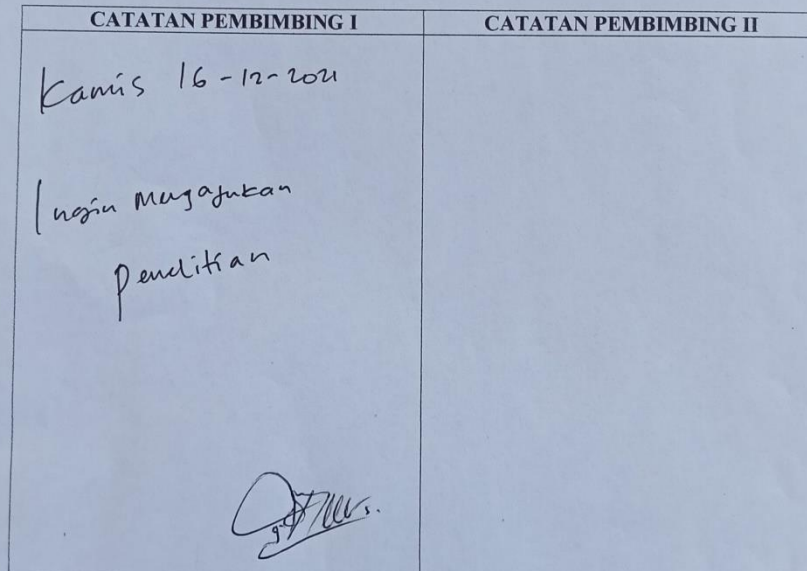 CATATAN PEMBIMBING I
CATATAN PEMBIMBING II
Kamis 16-12-2021
Ingin mengajukan
penelitian